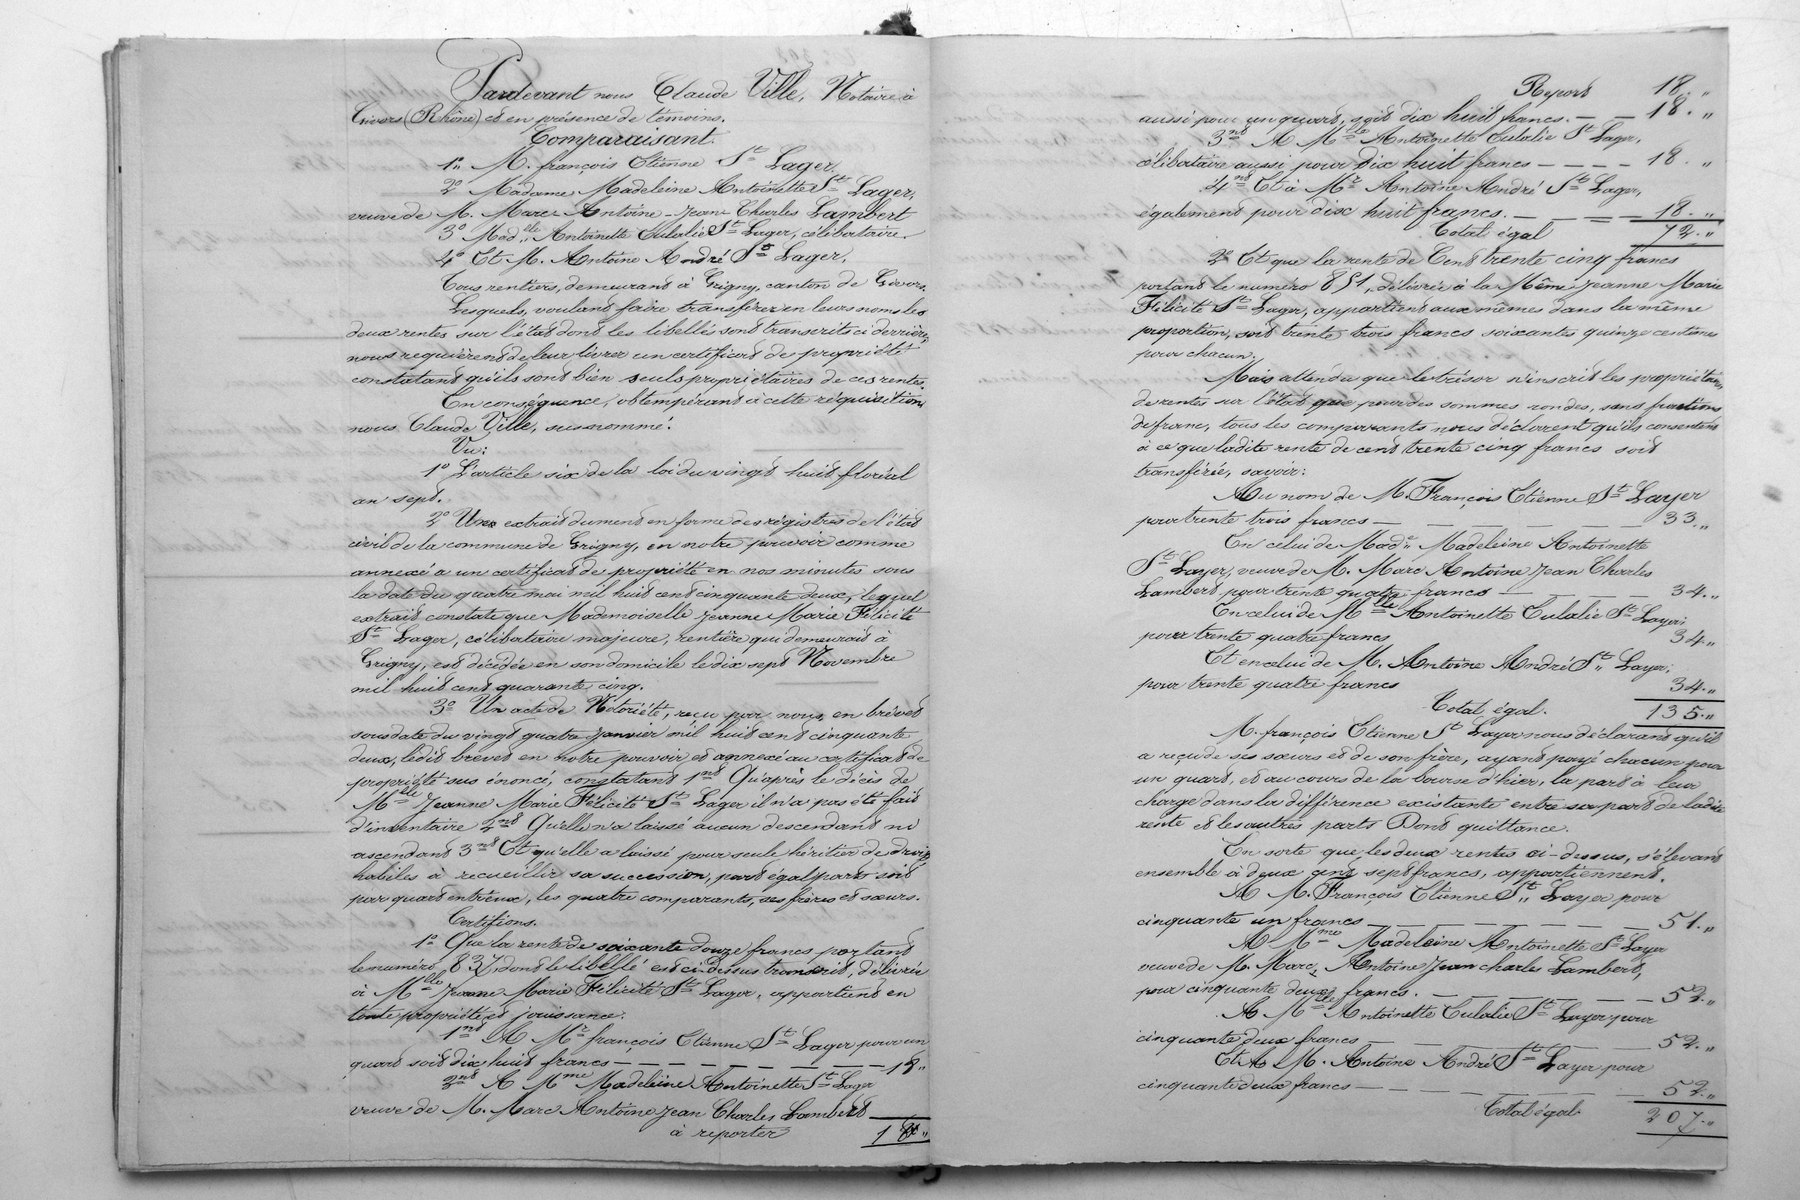 Pardevant nous Claude Ville, Notaire à
Givors (Rhône) et en présence de témoins.
Comparaisant.
1° M. françois Etienne St Lager,
2° Madame Madeleine Antoinette St Lager,
veuve de M. Marc Antoine-Jean Charles Lambert
3° Madlle Antoinette Eulalie St Lager, célibataire.
4° Et M. Antoine André St Lager,
Tous rentiers, demeurant à Grigny, canton de Givors.
Lesquels, voulant faire transférer en leurs noms les
deux rentes sur l'état dont les libellés sont transcrits ci derrière,
nous requièrent de leur livrer un certificat de propriété
constatant qu'ils sont bien seuls propriétaires de ces rentes.
En conséquence, obtempérant à cette réquisition
nous Claude Ville, susnommé.
Vu:
1° L'article six de la loi du vingt huit floréal
an sept.
2° Un extrait dument en forme des régistres de l'état
civil de la commune de Grigny, en notre pouvoir comme
annexé a un certificat de propriété en nos minutes sous
la date du quatre mai mil huit cent cinquante deux, lequel
extrait constate que Mademoiselle Jeanne Marie Félicité
St Lager, célibataire majeure, rentière qui demeurait à
Grigny, est décédée en son domicile le dix sept Novembre
mil huit cent quarante cinq.
3° Un acte de Notoriété, reçu par nous, en brévet
sous date du vingt quatre Janvier mil huit cent cinquante
deux, lédit brevet en notre pouvoir et annexé au certificat de
propriété sus énoncé, constatant 1nt Qu'après le décès de
Mlle Jeanne Marie Félicité St Lager il n'a pas été fait
d'inventaire 2nt Qu'elle n'a laissé aucun descendant ni
ascendant 3nt Et qu'elle a laissé pour seule héritier de droit,
habiles à recueillir sa succession, part égal parts soit
par quart entr'eux, les quatre comparants, ses frères et sœurs.
Certifions.
1° Que la rente de soixante douze francs portant
le numéro 837, dont le libellé est ci dessus transcrit, délivrée
à Mlle Jeanne Marie Félicité St Lager, appartient en
toute propriété et jouissance:
1nt A Mr françois Etienne St Lager pour un
quart soit dix huit francs — — — — — — 18 "
2nt A Mme Madeleine Antoinette St Lager
veuve de M. Marc Antoine Jean Charles Lambert
à reporter 18 "
Report 18. "
aussi pour un quart, soit dix huit francs. — — 18. "
3nt A Mlle Antoinette Eulalie St Lager,
célibataire aussi pour dix huit francs — — — — 18. "
4nt Et à Mr Antoine André St Lager,
également pour dix huit francs. — — — — 18. "
Total égal 72. "
2° Et que la rente de Cent trente cinq francs
portant le numéro 851, délivrée à la Même Jeanne Marie
Félicité St Lager, appartient aux mêmes dans la même
proportion, soit trente trois francs soixante quinze centimes
pour chacun.
Mais attendu que le trésor n'inscrit les propriétaires
de rentes sur l'état que pour des sommes rondes, sans fractions
de franc, tous les comparants nous déclarent qu'ils consentent
à ce que ladite rente de cent trente cinq francs soit
transférée, savoir:
Au nom de M. François Etienne St Layer
pour trente trois francs — — — — — — 33. "
En celui de Made Madeleine Antoinette
St Layer, veuve de M. Marc Antoine Jean Charles
Lambert pour trente quatre francs — — — 34. "
En celui de Mlle Antoinette Eulalie St Layer,
pour trente quatre francs 34. "
Et en celui de M. Antoine André St Layer,
pour trente quatre francs 34. "
Total égal. 135. "
M. françois Etienne St Layer nous déclarant qu'il
a reçu de ses sœurs et de son frère, ayant payé chacun pour
un quart, et au cours de la bourse d'hier, la part à leur
charge dans la différence existante entre sa part de ladite
rente et les autres parts Dont quittance.
En sorte que les deux rentes ci-dessus, s'élevant
ensemble à deux cent sept francs, appartiennent.
A M. François Etienne St Layer pour
cinquante un francs — — — — — — 51. "
A Mme Madeleine Antoinette St Layer
veuve de M. Marc, Antoine Jean charles Lambert,
pour cinquante deux francs. — — — — — 52. "
A Mlle Antoinette Eulalie St Layer pour
cinquante deux francs — — — — — — 52. "
Et A M. Antoine André St Layer pour
cinquante deux francs — — — — — — 52. "
Total égal 207. "